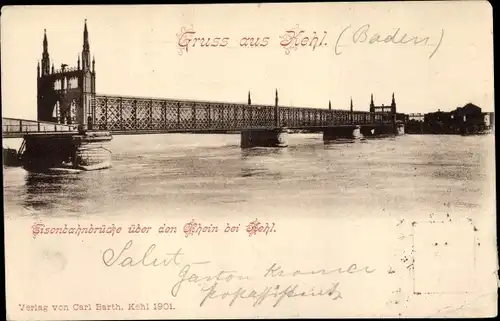 Gruss aus Kehl. (Baden)
Eisenbahnbrücke über den Rhein bei Kehl.
Salut Gaston Kromer
Verlag von Carl Barth, Kehl 1901.